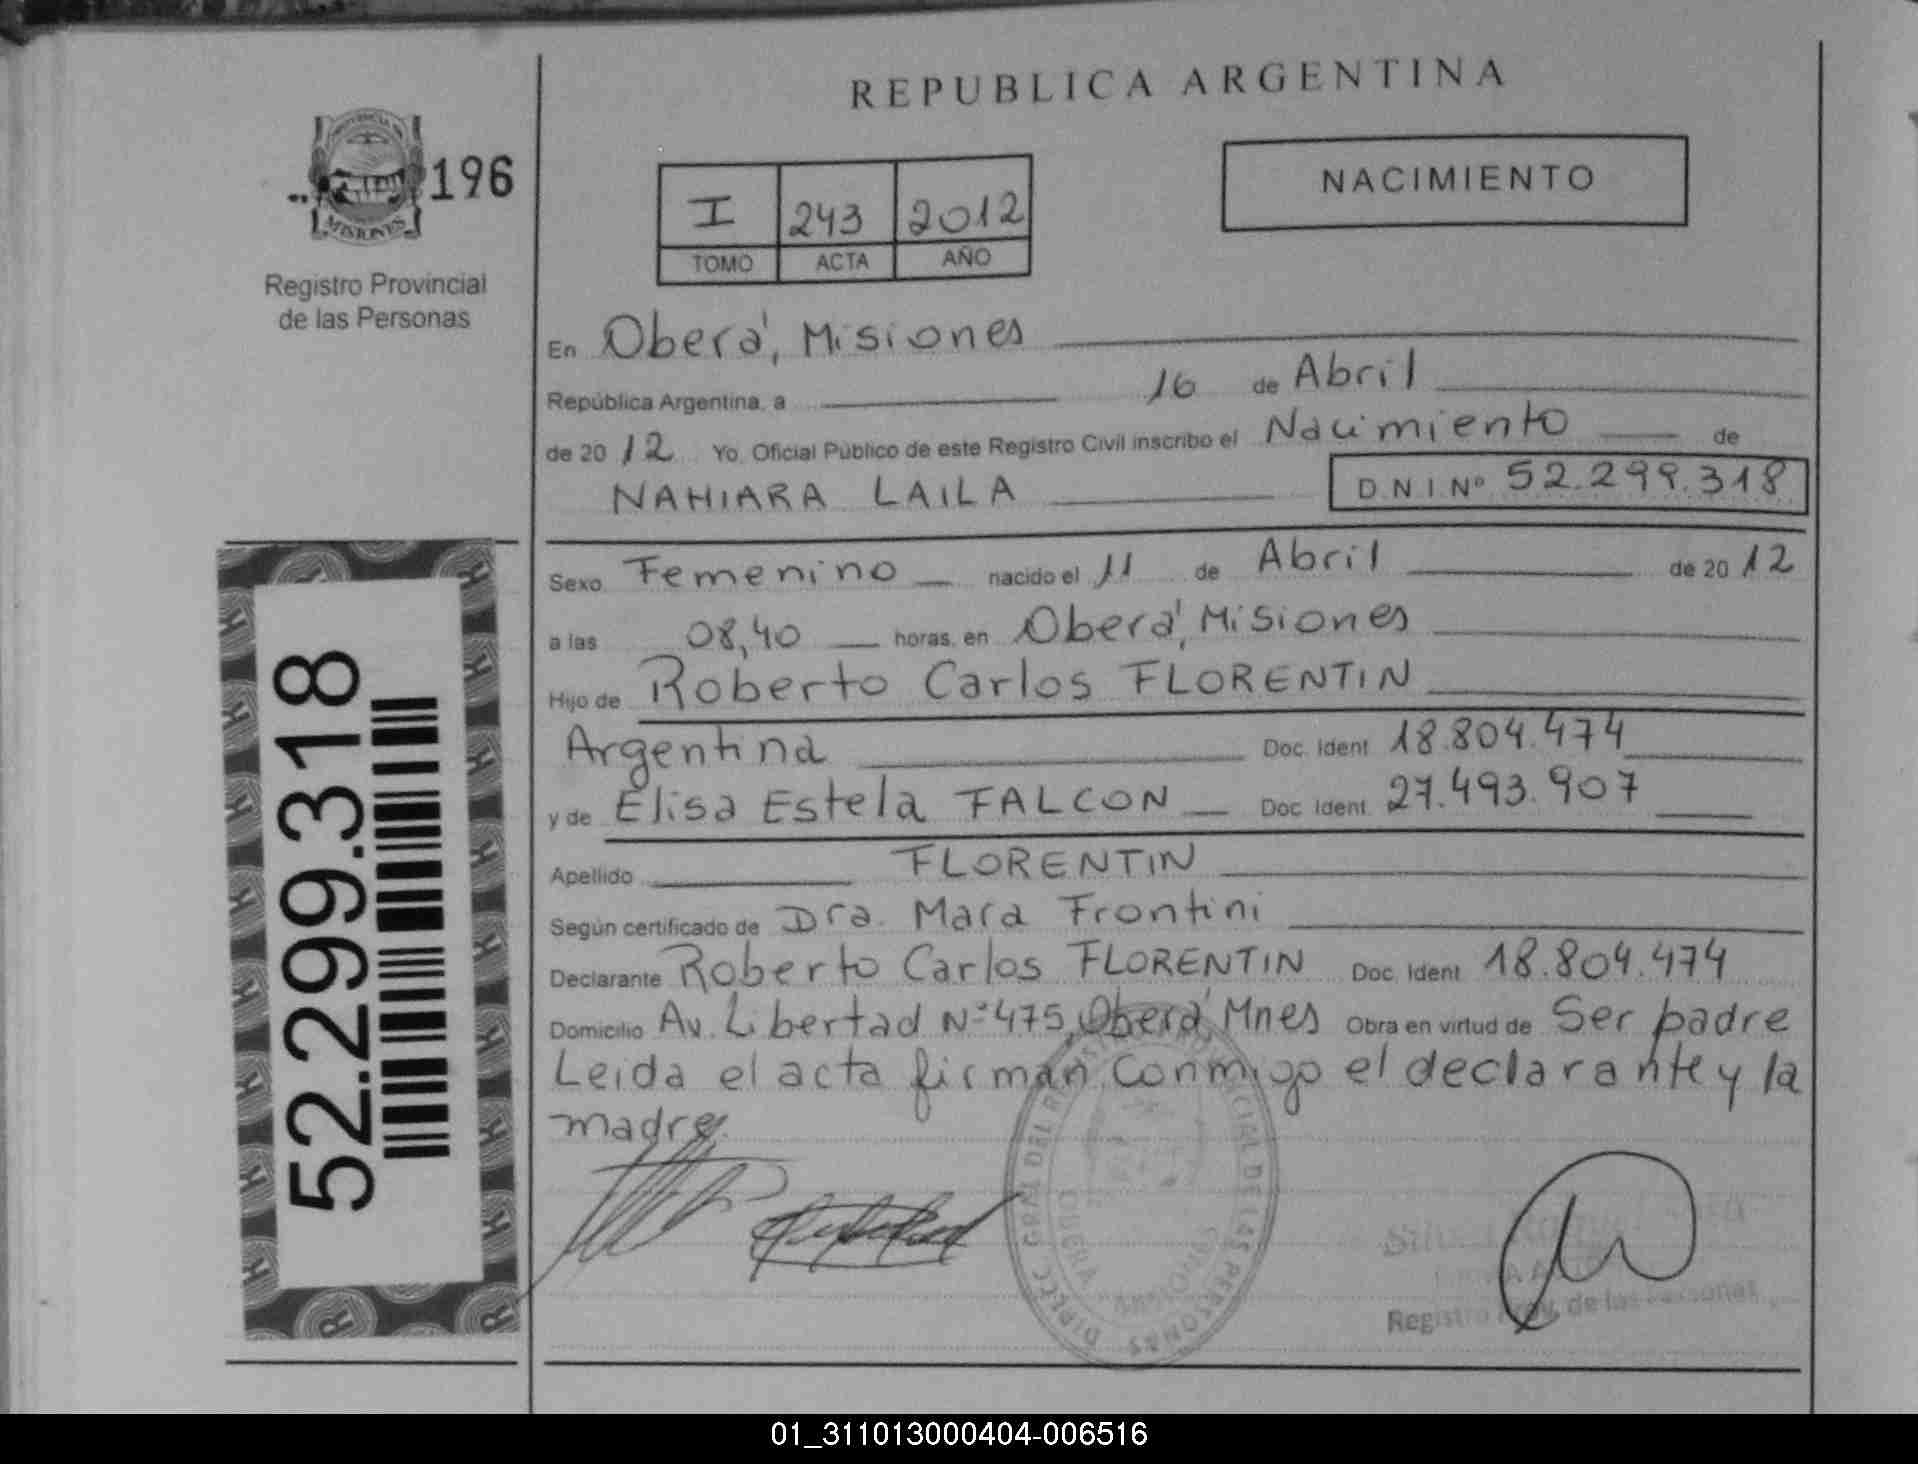 REPUBLICA ARGENTINA
PROVINCIA DE
MISIONES
196
Registro Provincial
de las Personas
NACIMIENTO
I 243 2012
TOMO ACTA AÑO
En Oberá, Misiones
República Argentina, a 16 de Abril
de 2012 Yo, Oficial Público de este Registro Civil inscribo el Nacimiento de
NAHIARA LAILA D.N.I.Nº 52.299.318
Sexo Femenino nacido el 11 de Abril de 2012
a las 08,40 horas, en Oberá, Misiones
Hijo de Roberto Carlos FLORENTIN
Argentina Doc. Ident. 18.804.474
y de Elisa Estela FALCON Doc. Ident. 27.493.907
Apellido FLORENTIN
Según certificado de Dra. Mara Frontini
Declarante Roberto Carlos FLORENTIN Doc. Ident. 18.804.474
Domicilio Av. Libertad Nº475, Oberá Mnes Obra en virtud de Ser padre
Leida el acta firman conmigo el declarante y la
madre.
52.299.318
DIREC. GRAL DEL REGISTRO PROVINCIAL DE LAS PERSONAS
OBERA MISIONES
Registro Prov. de las Personas
01_311013000404-006516